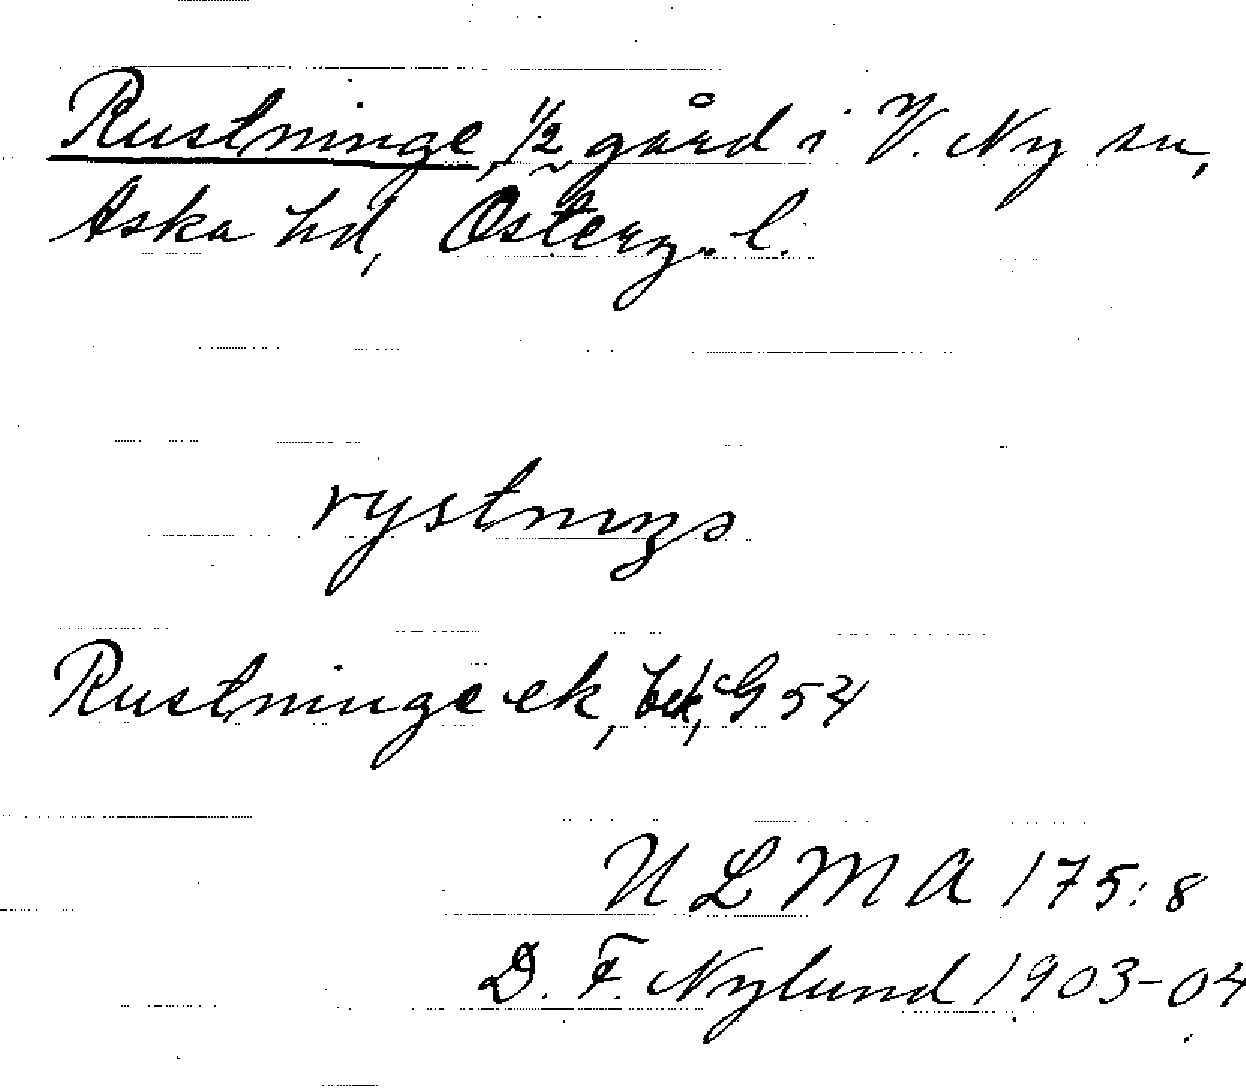 Rustninge, 1/2 gård i V. Ny sn,
Aska hd, Österg. l.
rystnings
Rustninge ek, bek, G 54
ULMA 175:8
D. F. Nylund 1903-04